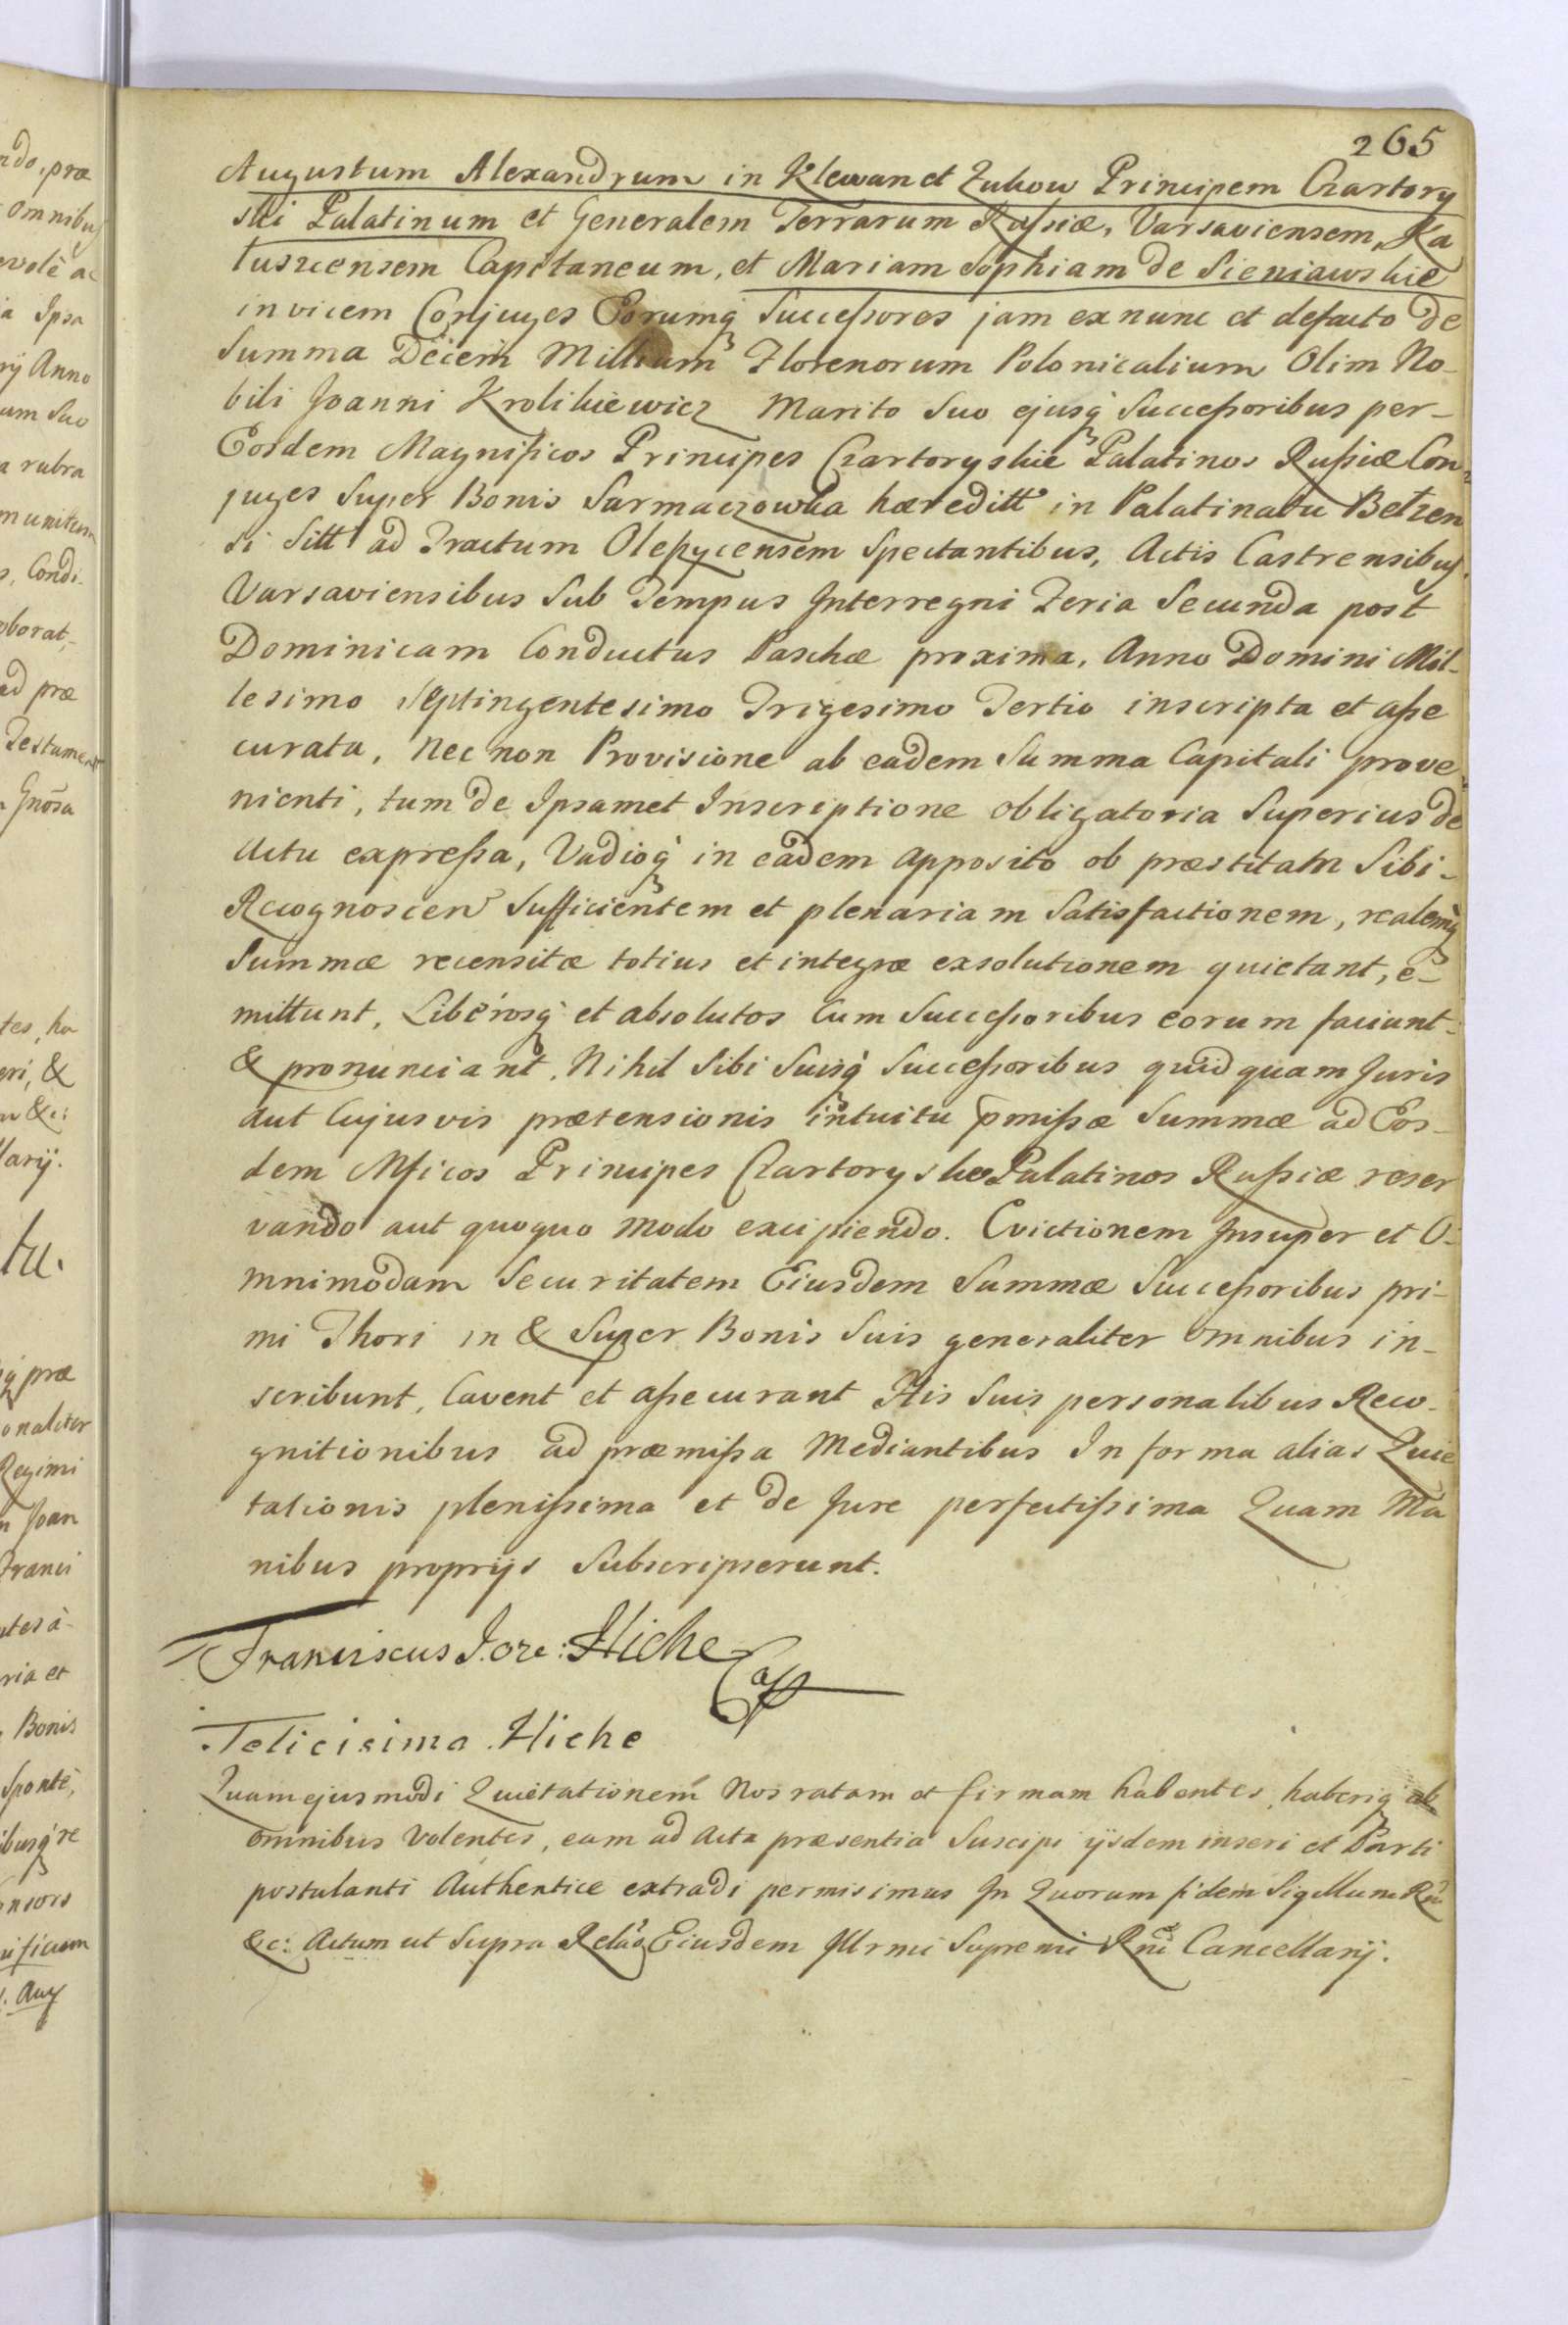 265
Augustum Alexandrum in Klewan et Zukow Principem Czartory
ski Palatinum et Generalem Terrarum Russiæ, Varsaviensem, Ka
lusscensem Capitaneum, et Mariam Sophiam de Sieniawskie
invicem Conjuges Eorumq Successores jam exnunc et defacto de
Summa Decem Millium Florenorum Polonicalium Olim No-
bili Joanni Krolikiewicz Marito Suo ejusq Successoribus per-
Eosdem Magnificos Principes Czartoryskie Palatinos Russiæ Con-
juges Super Bonis Sarmaczowka hæreditt in Palatinatu Belzen
si Sitt ad Tractum Oleszycensem Spectantibus, Actis Castrensibus
Varsaviensibus Sub Tempus Interregni Feria Secunda post
Dominicam Conductus Paschæ proxima, Anno Domini Mil-
lesimo Septingentesimo Trigesimo Tertio inscripta et asse
curata, Nec non Provisione ab eadem Summa Capitali prove-
nienti, tum de Ipsamet Inscriptione obligatoria Superius de
actu expressa, Vadioq in eadem apposito ob præstitam Sibi-
Recognoscen Sufficientem et plenariam Satisfactionem, realemq
Summæ recensitæ totius et integræ exsolutionem quietant, e-
mittunt, Liberosq et absolutos cum Successoribus eorum faciunt-
& pronunciant, Nihil Sibi Suisq Successoribus quidquam Juris
aut Cujusvis prætensionis intuitu pmissæ Summæ ad Eos-
dem Mficos Principes Czartoryskie Palatinos Russiæ reser
vando aut quoquo modo excipiendo. Evictionem Insuper et O-
mnimodam Securitatem Eiusdem Summæ Successoribus pri-
mi Thori in & Super Bonis Suis generaliter omnibus in-
scribunt, Cavent et assecurant Htis Suis personalibus Reco-
gnitionibus ad præmissa Mediantibus In forma alias Quie
tationis plenissima et de Jure perfectissima Quam Ma
nibus proprijs Subscripserunt.
Franciscus Hiche
Felicisima Hiche
Quamejusmodi Quietationem Nos ratam et firmam habentes, haberiq ab
omnibus Volentes, eam ad Acta præsentia Suscipi ijsdem inseri et Parti
postulanti Authentice extradi permisimus In Quorum fidem Sigillum Rni
&c: Actum ut Supra Relao Eiusdem Illrmi Supremi Rni Cancellarij.